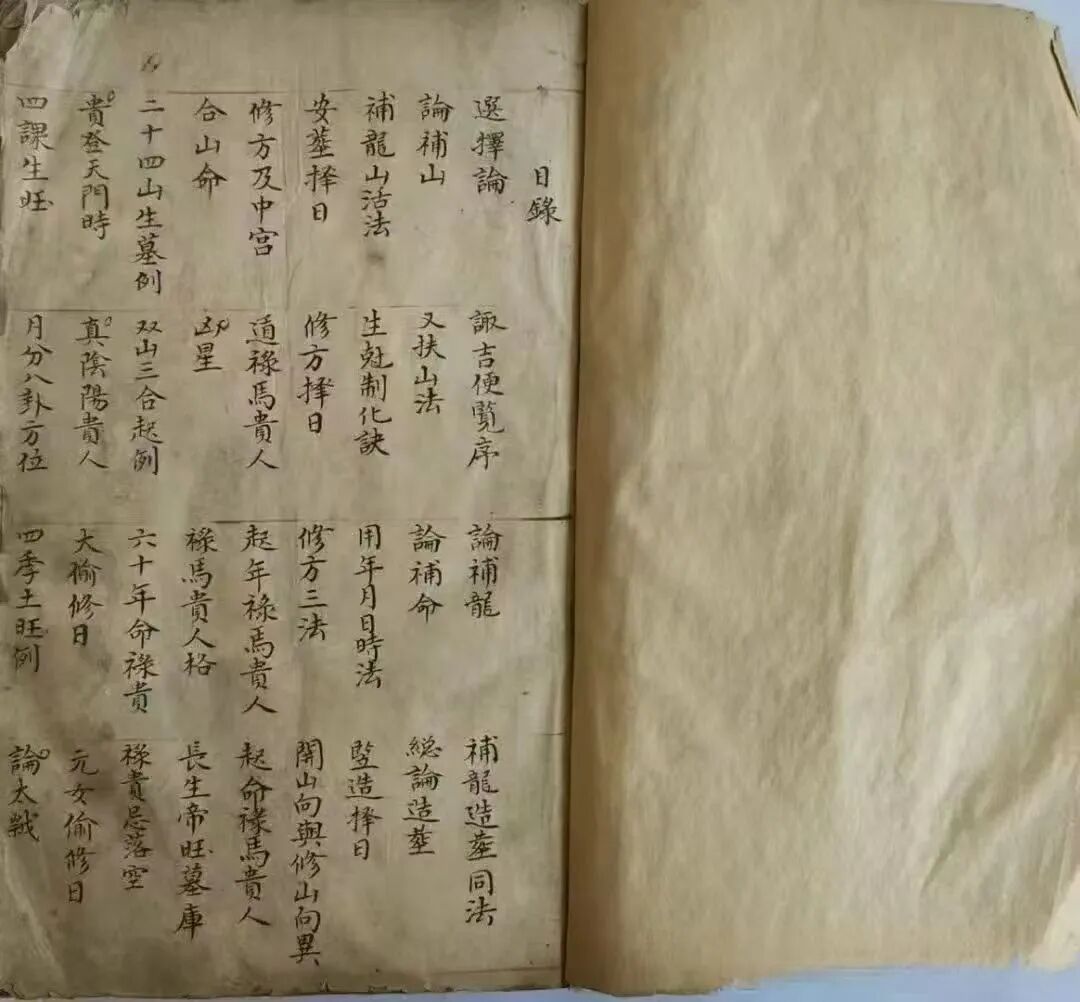 目錄
選擇論 諏吉便覧序 論補龍 補龍造塟同法
論補山 又扶山法 論補命 総論造塟
補龍山活法 生尅制化訣 用年月日時法 竪造择日
安塟择日 修方择日 修方三法 開山向與修山向異
修方及中宫 道禄馬貴人 起年禄馬貴人 起命禄馬貴人
合山命 凶星 禄馬貴人格 長生帝旺墓庫
二十四山生墓例 双山三合起例 六十年命禄貴 禄貴忌落空
貴登天門時 真陰陽貴人 大偷修日 元女偷修日
四課生旺 月分八卦方位 四季土旺例 論太歳